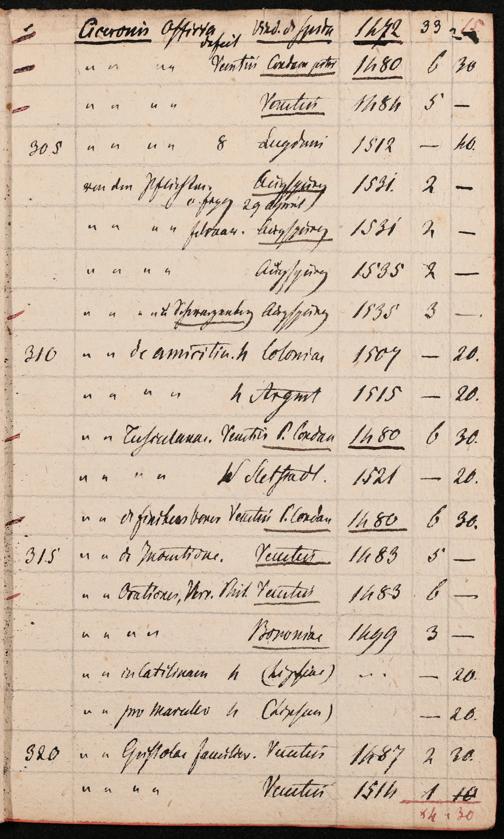 Ciceronis Officia Vind. de Spira 1472 33
defect
" " " " Venetiis Condam 1480 6 30
" " " " Venetiis 1484 5 —
305 " " " " 8 Lugduni 1512 — 40.
von den Pflichten, Augspurg 1531. 2 —
29 April)
" " " " Augspurg 1531 2 —
" " " " Augspurg 1535 2 —
" " " " v. Schwarzenberg Augspurg 1535 3 —
310 " " de amicitia. h Coloniae 1507 — 20.
" " " " h Argent 1515 — 20.
" " Tusculanae. Venetiis P. Condam 1480 6 30.
" " " " W Sletstadt. 1521 — 20.
" " de finibus bonor Venetiis P. Condam 1480 6 30.
315 " " de Inventione. Venetiis 1483 5 —
" " Orationes, Verr. Phil Venetiis 1483 6 —
" " " " Bononiae 1499 3 —
" " in Catilinam h (Lipsiae) ... — 20.
" " pro Marcello h (Lipsiae) — 20.
320 " " Epistolae familiar. Venetiis 1487 2 30.
" " " " Venetiis 1514 1 10
84 . 30